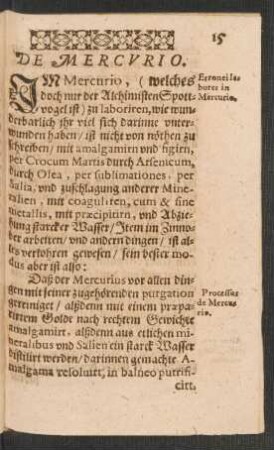 15
DE MERCVRIO.
IM Mercurio, (welches
doch nur der Alchimisten Spott-
vogel ist) zu laboriren, wie wun
derbarlich jhr viel sich darinne vnter-
wunden haben / ist nicht von nöthen zu
schreiben / mit amalgamirn vnd figirn,
per Crocum Martis durch Arsenicum,
durch Olea, per sublimationes, per
Salia, vnd zuschlagung anderer Mine-
ralien, mit coaguliren, cum & sine
metallis, mit præcipitirn, vnd Abzie-
hung starcker Wasser / Item im Zinno-
ber arbeiten / vnd andern dingen / ist al-
les verlohren gewesen / sein bester mo-
dus aber ist also:
Daß der Mercurius vor allen din-
gen mit seiner zugehörenden purgation
gereiniget / alßdenn mit einem præpa-
rirtem Golde nach rechtem Gewichte
amalgamirt, alßdenn aus etlichen mi-
neralibus vnd Salien ein starck Wasser
distilirt werden / darinnen gemachte A-
malgama resoluirt, in balneo putrifi-
cirt.
Erronei la-
bores in
Mercurio.
Processus
de Mercu-
rio.